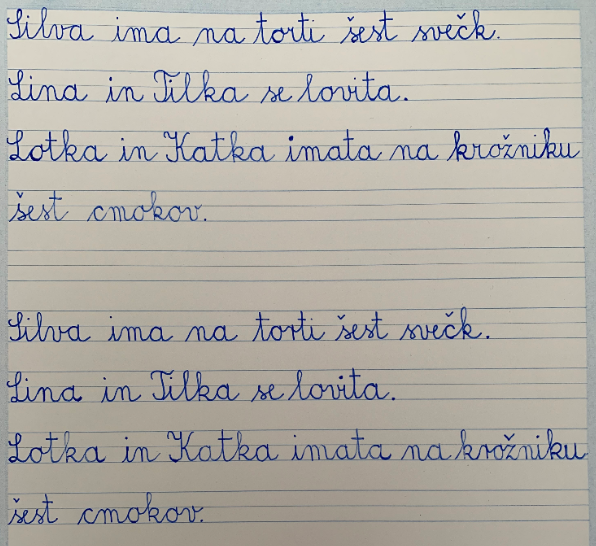 Silva ima na torti šest svečk.
Lina in Tilka se lovita.
Lotka in Katka imata na krožniku
šest cmokov.
Silva ima na torti šest svečk.
Lina in Tilka se lovita.
Lotka in Katka imata na krožniku
šest cmokov.